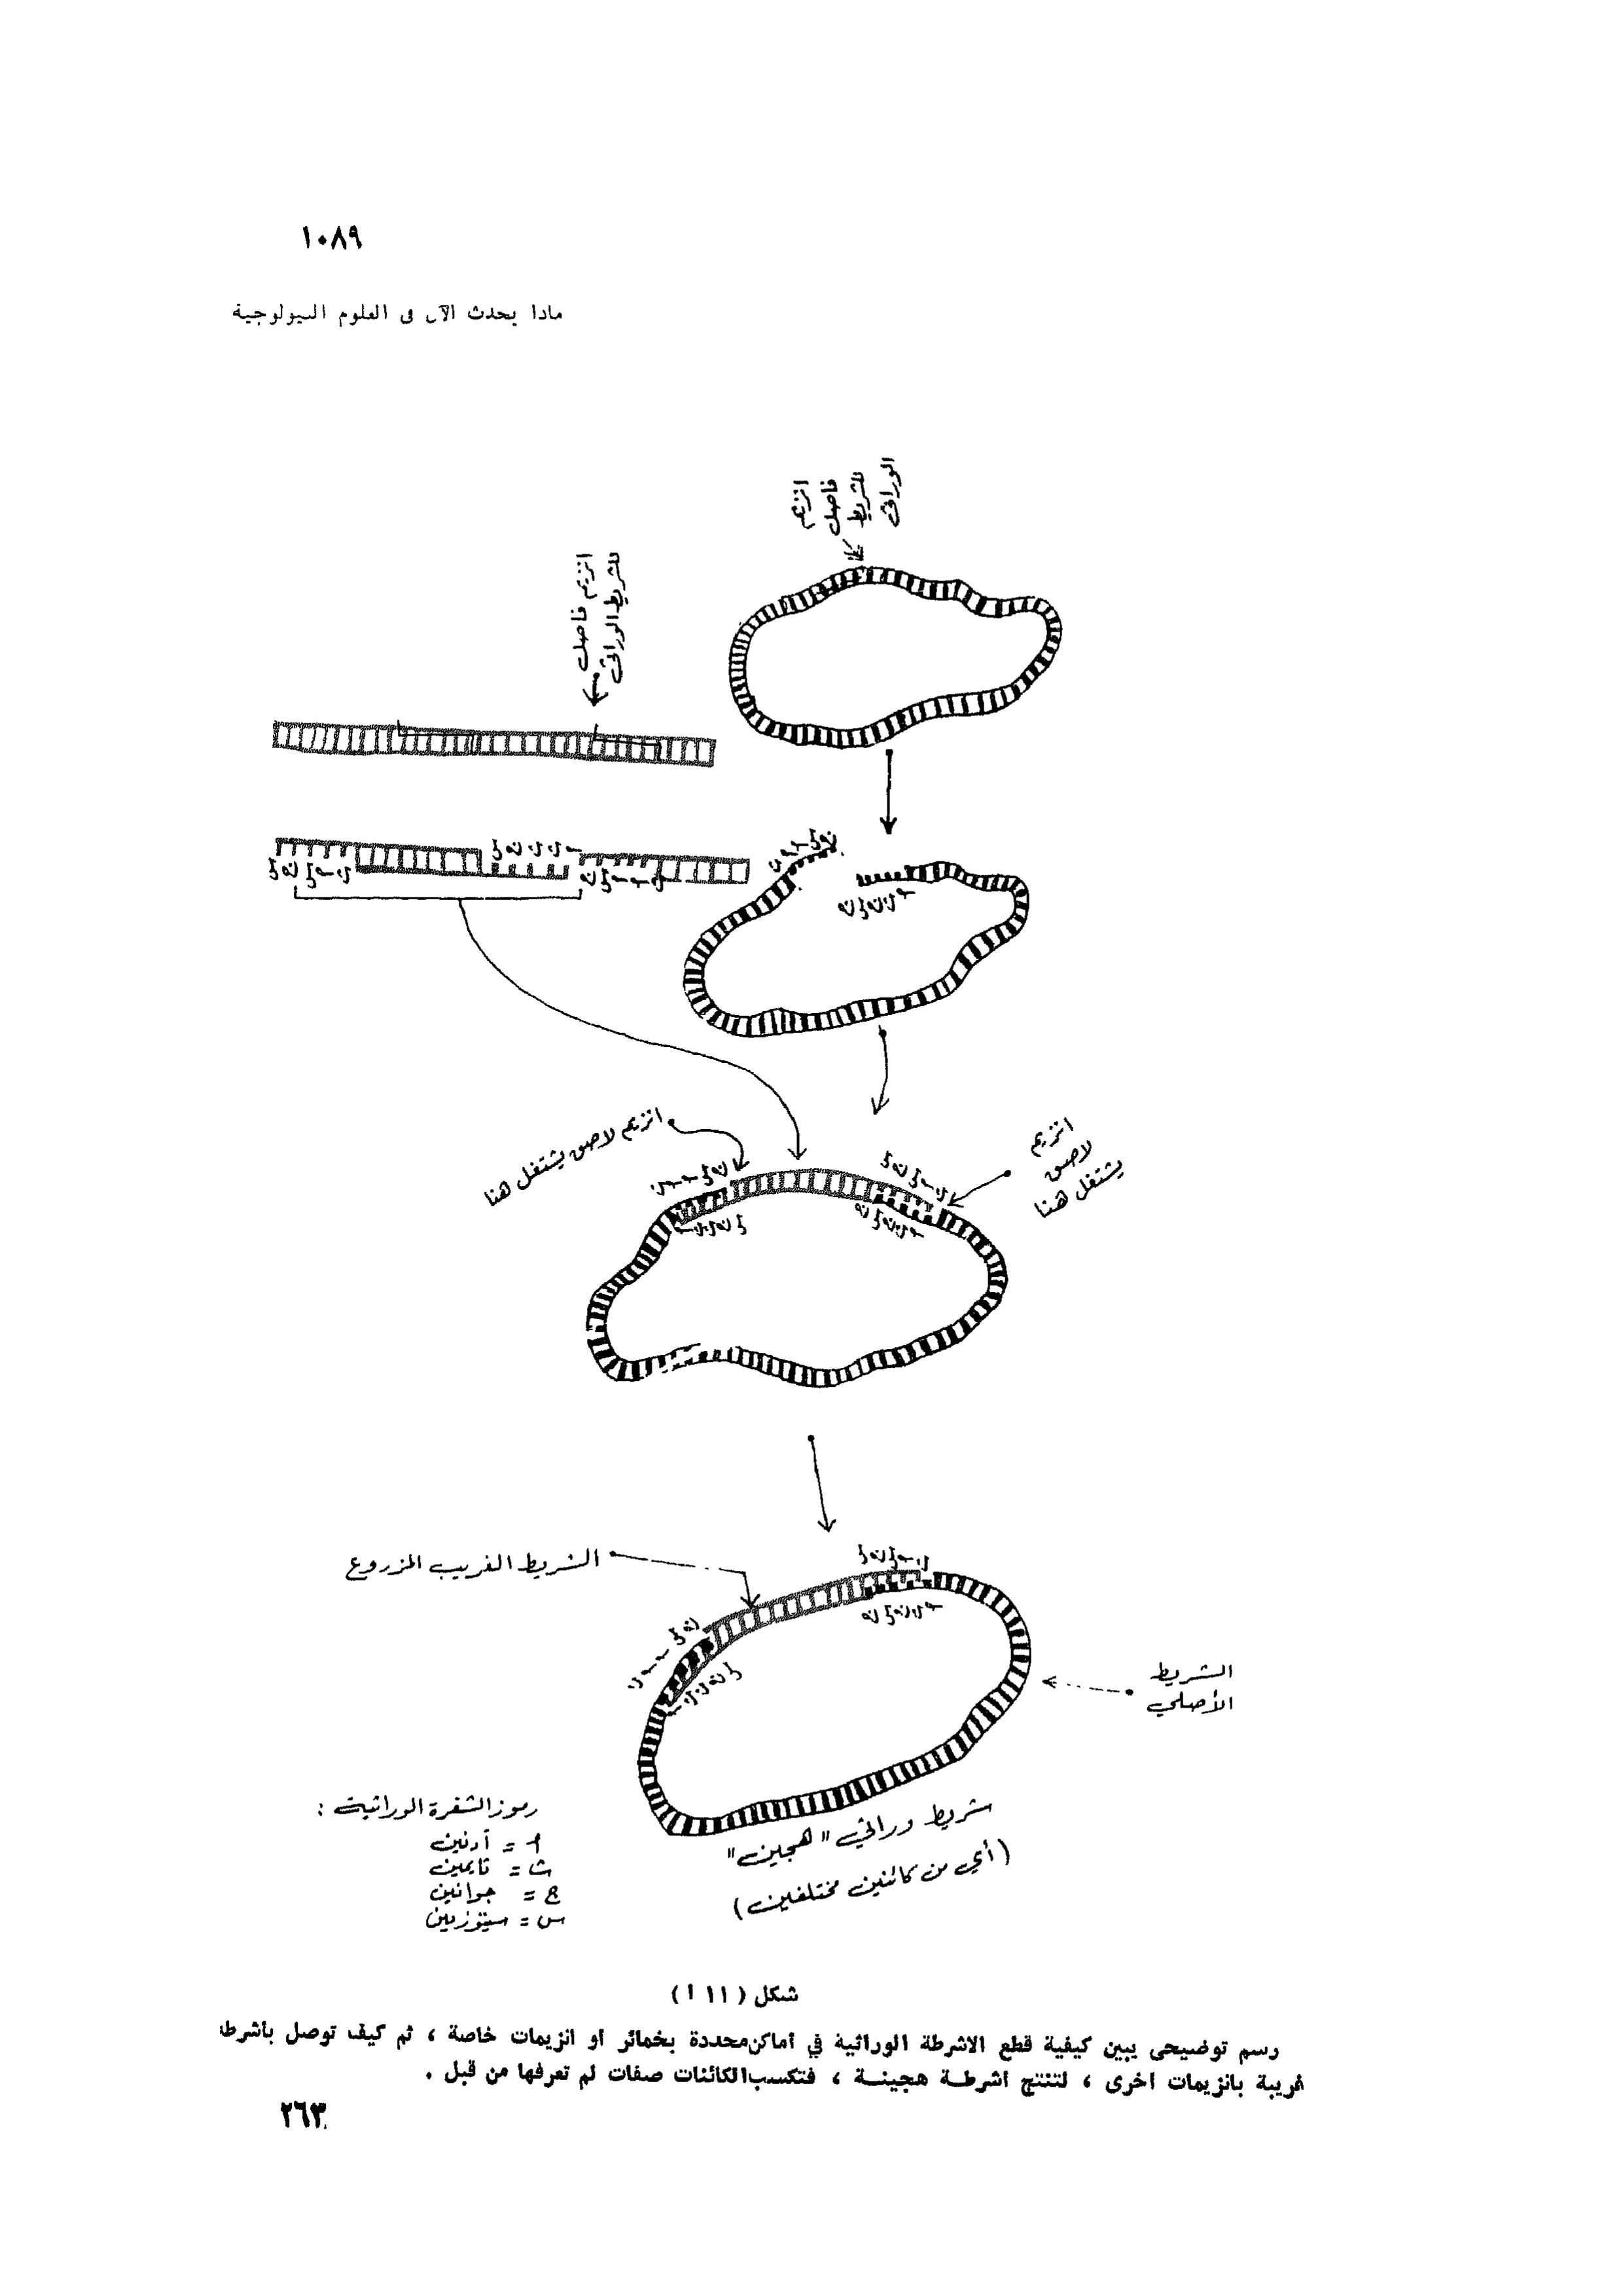 ١٠٨٩
ماذا يحدث الآن في العلوم البيولوجية
انزيم
فاصل
للشريط
الوراثى
انزيم فاصل
للشريط الوراثى
انزيم لاصق يشتغل هنا
انزيم
لاصق
يشتغل هنا
الشريط الغريب المزروع
الشريط
الأصلي
شريط وراثي "هجين"
(أي من كائنين مختلفين)
رموز الشفرة الوراثية :
أ = أدنين
ث = ثايمين
ج = جوانين
س = سيتوزين
شكل ( ١١ أ )
رسم توضيحى يبين كيفية قطع الاشرطة الوراثية في أماكن محددة بخمائر أو انزيمات خاصة ، ثم كيف توصل بأشرطة
غريبة بانزيمات اخرى ، لتنتج اشرطة هجينة ، فتكسب الكائنات صفات لم تعرفها من قبل .
٢٦٣